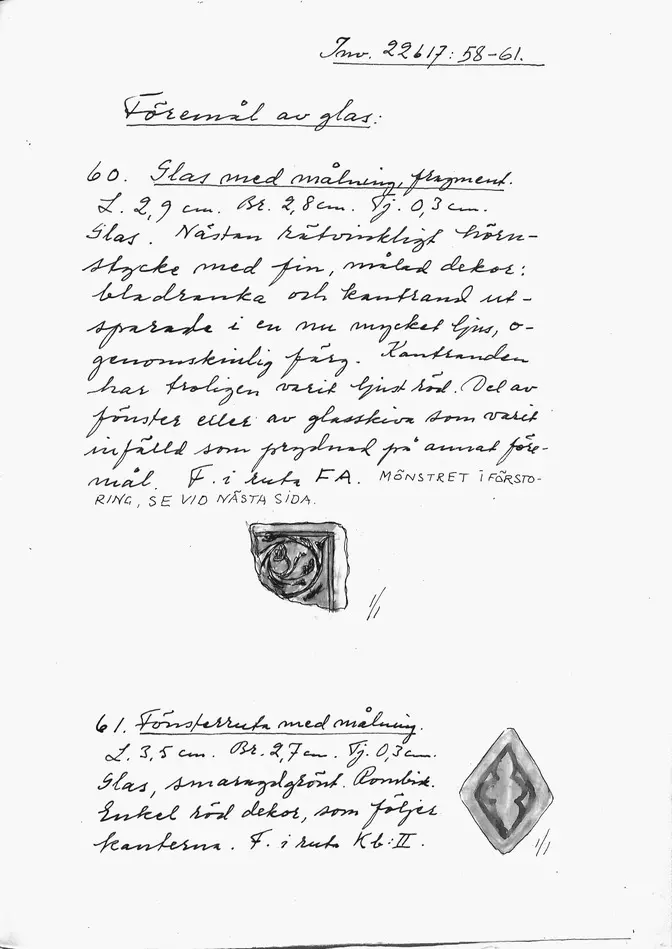 Inv. 22617:58-61.
Föremål av glas:
60. Glas med målning, fragment.
L. 2,9 cm. Br. 2,8 cm. Tj. 0,3 cm.
Glas. Nästan rätvinkligt hörn-
stycke med fin, målad dekor:
bladranka och kantrand ut-
sparade i en nu mycket ljus, o-
genomskinlig färg. Kantranden
har troligen varit ljust röd. Del av
fönster eller av glasskiva som varit
infälld som prydnad på annat före-
mål. F. i ruta FA. MÖNSTRET I FÖRSTO-
RING, SE VID NÄSTA SIDA.
1/1
61. Fönsterruta med målning.
L. 3,5 cm. Br. 2,7 cm. Tj. 0,3 cm.
Glas, smaragdgrönt. Rombisk.
Enkel röd dekor, som följer
kanterna. F. i ruta Kb:II.
1/1